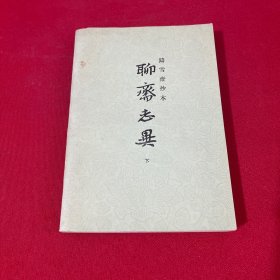 鑄雪齋抄本
聊齋志異
下